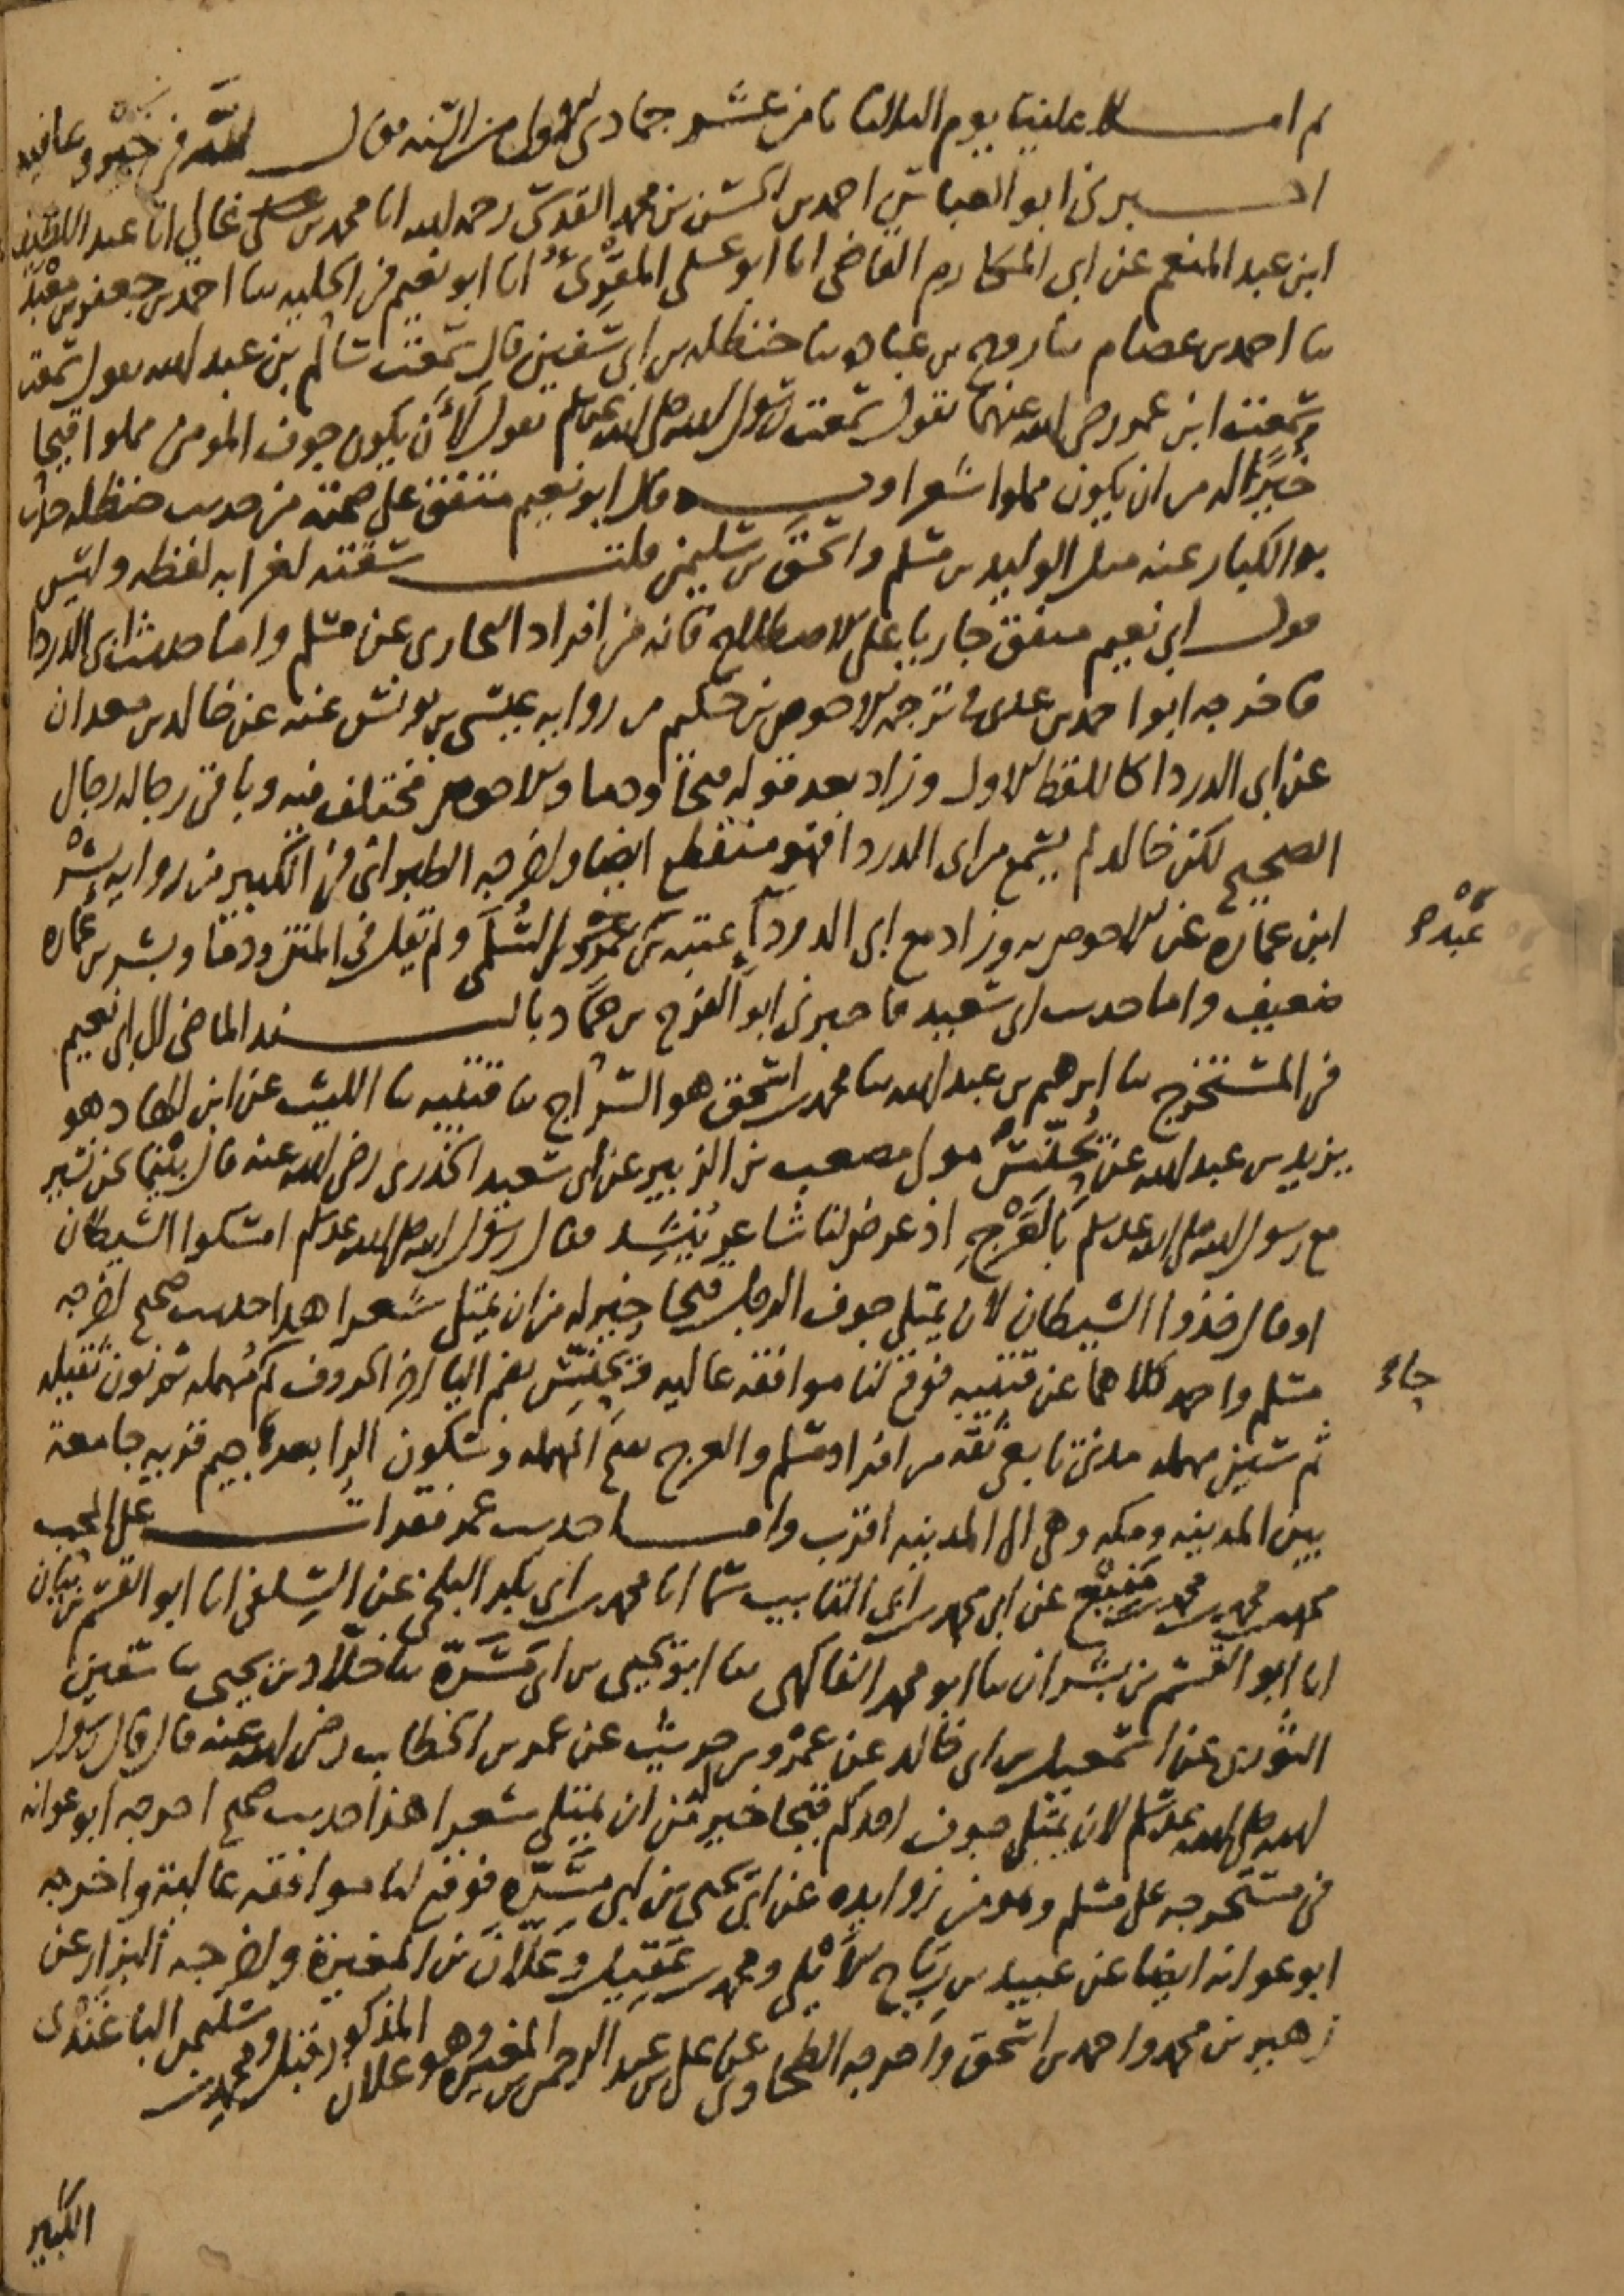 ثم املا علينا يوم الثلاثا ثامن عشر جمادى الاولى من السنة فقال احسن الله في خير وعافيه
اخبرني ابو العباس احمد بن الحسن بن محمد القدسي رحمه الله انا محمد بن غالي انا عبد اللطيف
ابن عبد المنعم عن ابي المكارم القاضي انا ابو علي المقرئ انا ابو نعيم في الحلية ثنا احمد بن جعفر بن معبد
ثنا احمد بن عصام ثنا روح بن عبادة ثنا حنظله بن ابي سفين قال سمعت سالم بن عبد الله يقول سمعت
سمعت ابن عمر رضي الله عنهما يقول سمعت رسول الله صلى الله عليه وسلم يقول لأن يكون جوف المومن مملوا قيحا
خيرًا له من ان يكون مملوا شعرا وبه قال ابو نعيم متفق على صحته من حديث حنظله حدث
به الكبار عنه مثل الوليد بن مسلم واسحق بن سليمن قلت سقته لغرابه لفظه وليس
قول ابي نعيم متفق جاريا على الاصطلاح فانه من افراد البخارى عن مسلم واما حديث ابى الدردا
فاخرجه ابو احمد بن عدى في ترجمه الاحوص بن حكيم من روايه عيسى بن يونس عنه عن خالد بن معدان
عن ابى الدردا كاللفظ الاول وزاد بعد قوله قيحا ودما والاحوص مختلف فيه وباقي رجاله رجال
الصحيح لكن خالد لم يسمع من ابى الدردا فهو منقطع ايضا واخرجه الطبراني في الكبير من روايه بشر
ابن عماره عن الاحوص به وزاد مع ابى الدرداء عتبه بن عبد السلمي ولم يقل في المتن ودما وبشر بن عماره
عبد
ضعيف واما حديث ابى سعيد فاخبرني ابو الفرج بن حماد بالسند الماضي الى ابى نعيم
في المستخرج ثنا ابرهيم بن عبد الله ثنا محمد بن اسحق هو السراج ثنا قتيبه ثنا الليث عن ابن الهاد هو
يزيد بن عبد الله عن يحنس مولى مصعب بن الزبير عن ابى سعيد الخدرى رضي الله عنه قال بينما نحن نسير
مع رسول الله صلى الله عليه وسلم بالعرج اذ عرض لنا شاعر ينشد فقال رسول الله صلى الله عليه وسلم امسكوا الشيطان
او قال خذوا الشيطان لان يمتلى جوف الرجل قيحا خير له من ان يمتلى شعرا هذا حديث صحيح اخرجه
مسلم واحمد كلاهما عن قتيبه فوقع لنا موافقه عاليه ويحنس بضم اليا اخر الحروف ثم مهمله ثم نون ثقيله
حاء
ثم سين مهمله مدني تابعى ثقه من افراد مسلم والعرج بفتح المهمله وسكون الرا بعدها جيم قريه جامعة
بين المدينه ومكه وهى الى المدينه اقرب واما حديث عمر فقرات على المحب
محمد بن محمد بن محمد بن منيع عن ابى محمد بن ابى القاسم سماعا انا محمد بن ابى بكر البلخي عن السلفي انا ابو القسم بن بيان
انا ابو القسم بن بشران ثنا ابو محمد الفاكهى ثنا ابو يحيى بن ابى مسرة ثنا خلاد بن يحيى ثنا سفين
الثورى عن اسمعيل بن ابى خالد عن عمرو بن حريث عن عمر بن الخطاب رضي الله عنه قال قال رسول
الله صلى الله عليه وسلم لان يمتلى جوف احدكم قيحا خير له من ان يمتلى شعرا هذا حديث صحيح اخرجه ابو عوانه
في مستخرجه على مسلم وهو من زوايده عن ابى يحيى بن ابى مسرة فوقع لنا موافقه عالية واخرجه
ابو عوانه ايضا عن عبيد بن رباح الأيلي ومحمد بن عقيل وعلان بن المغيرة واخرجه البزار عن
زهير بن محمد واحمد بن اسحق واخرجه الطحاوى عن على بن عبد الرحمن بن المغيره وهو علان المذكور قبل ومحمد بن سليمن الباغندى
الكبير